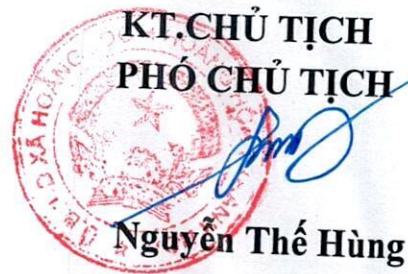 KT.CHỦ TỊCH
PHÓ CHỦ TỊCH
XÃ HOẰNG
Nguyễn Thế Hùng